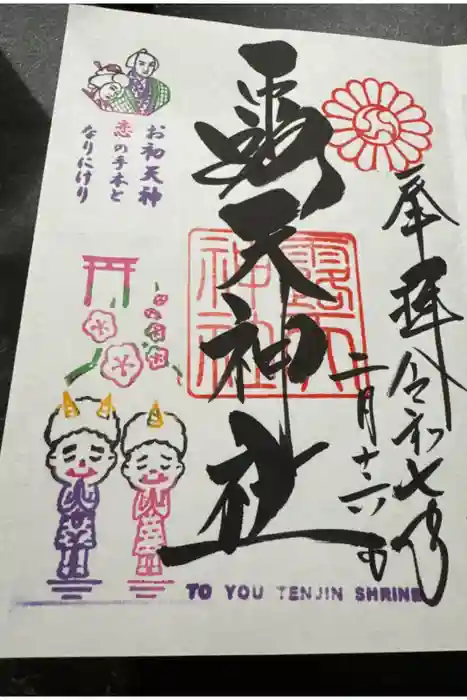 奉拝 令和七年
二月十六日
露天神社
露天
神社
お初天神
恋の手本と
なりにけり
TO YOU TENJIN SHRINE